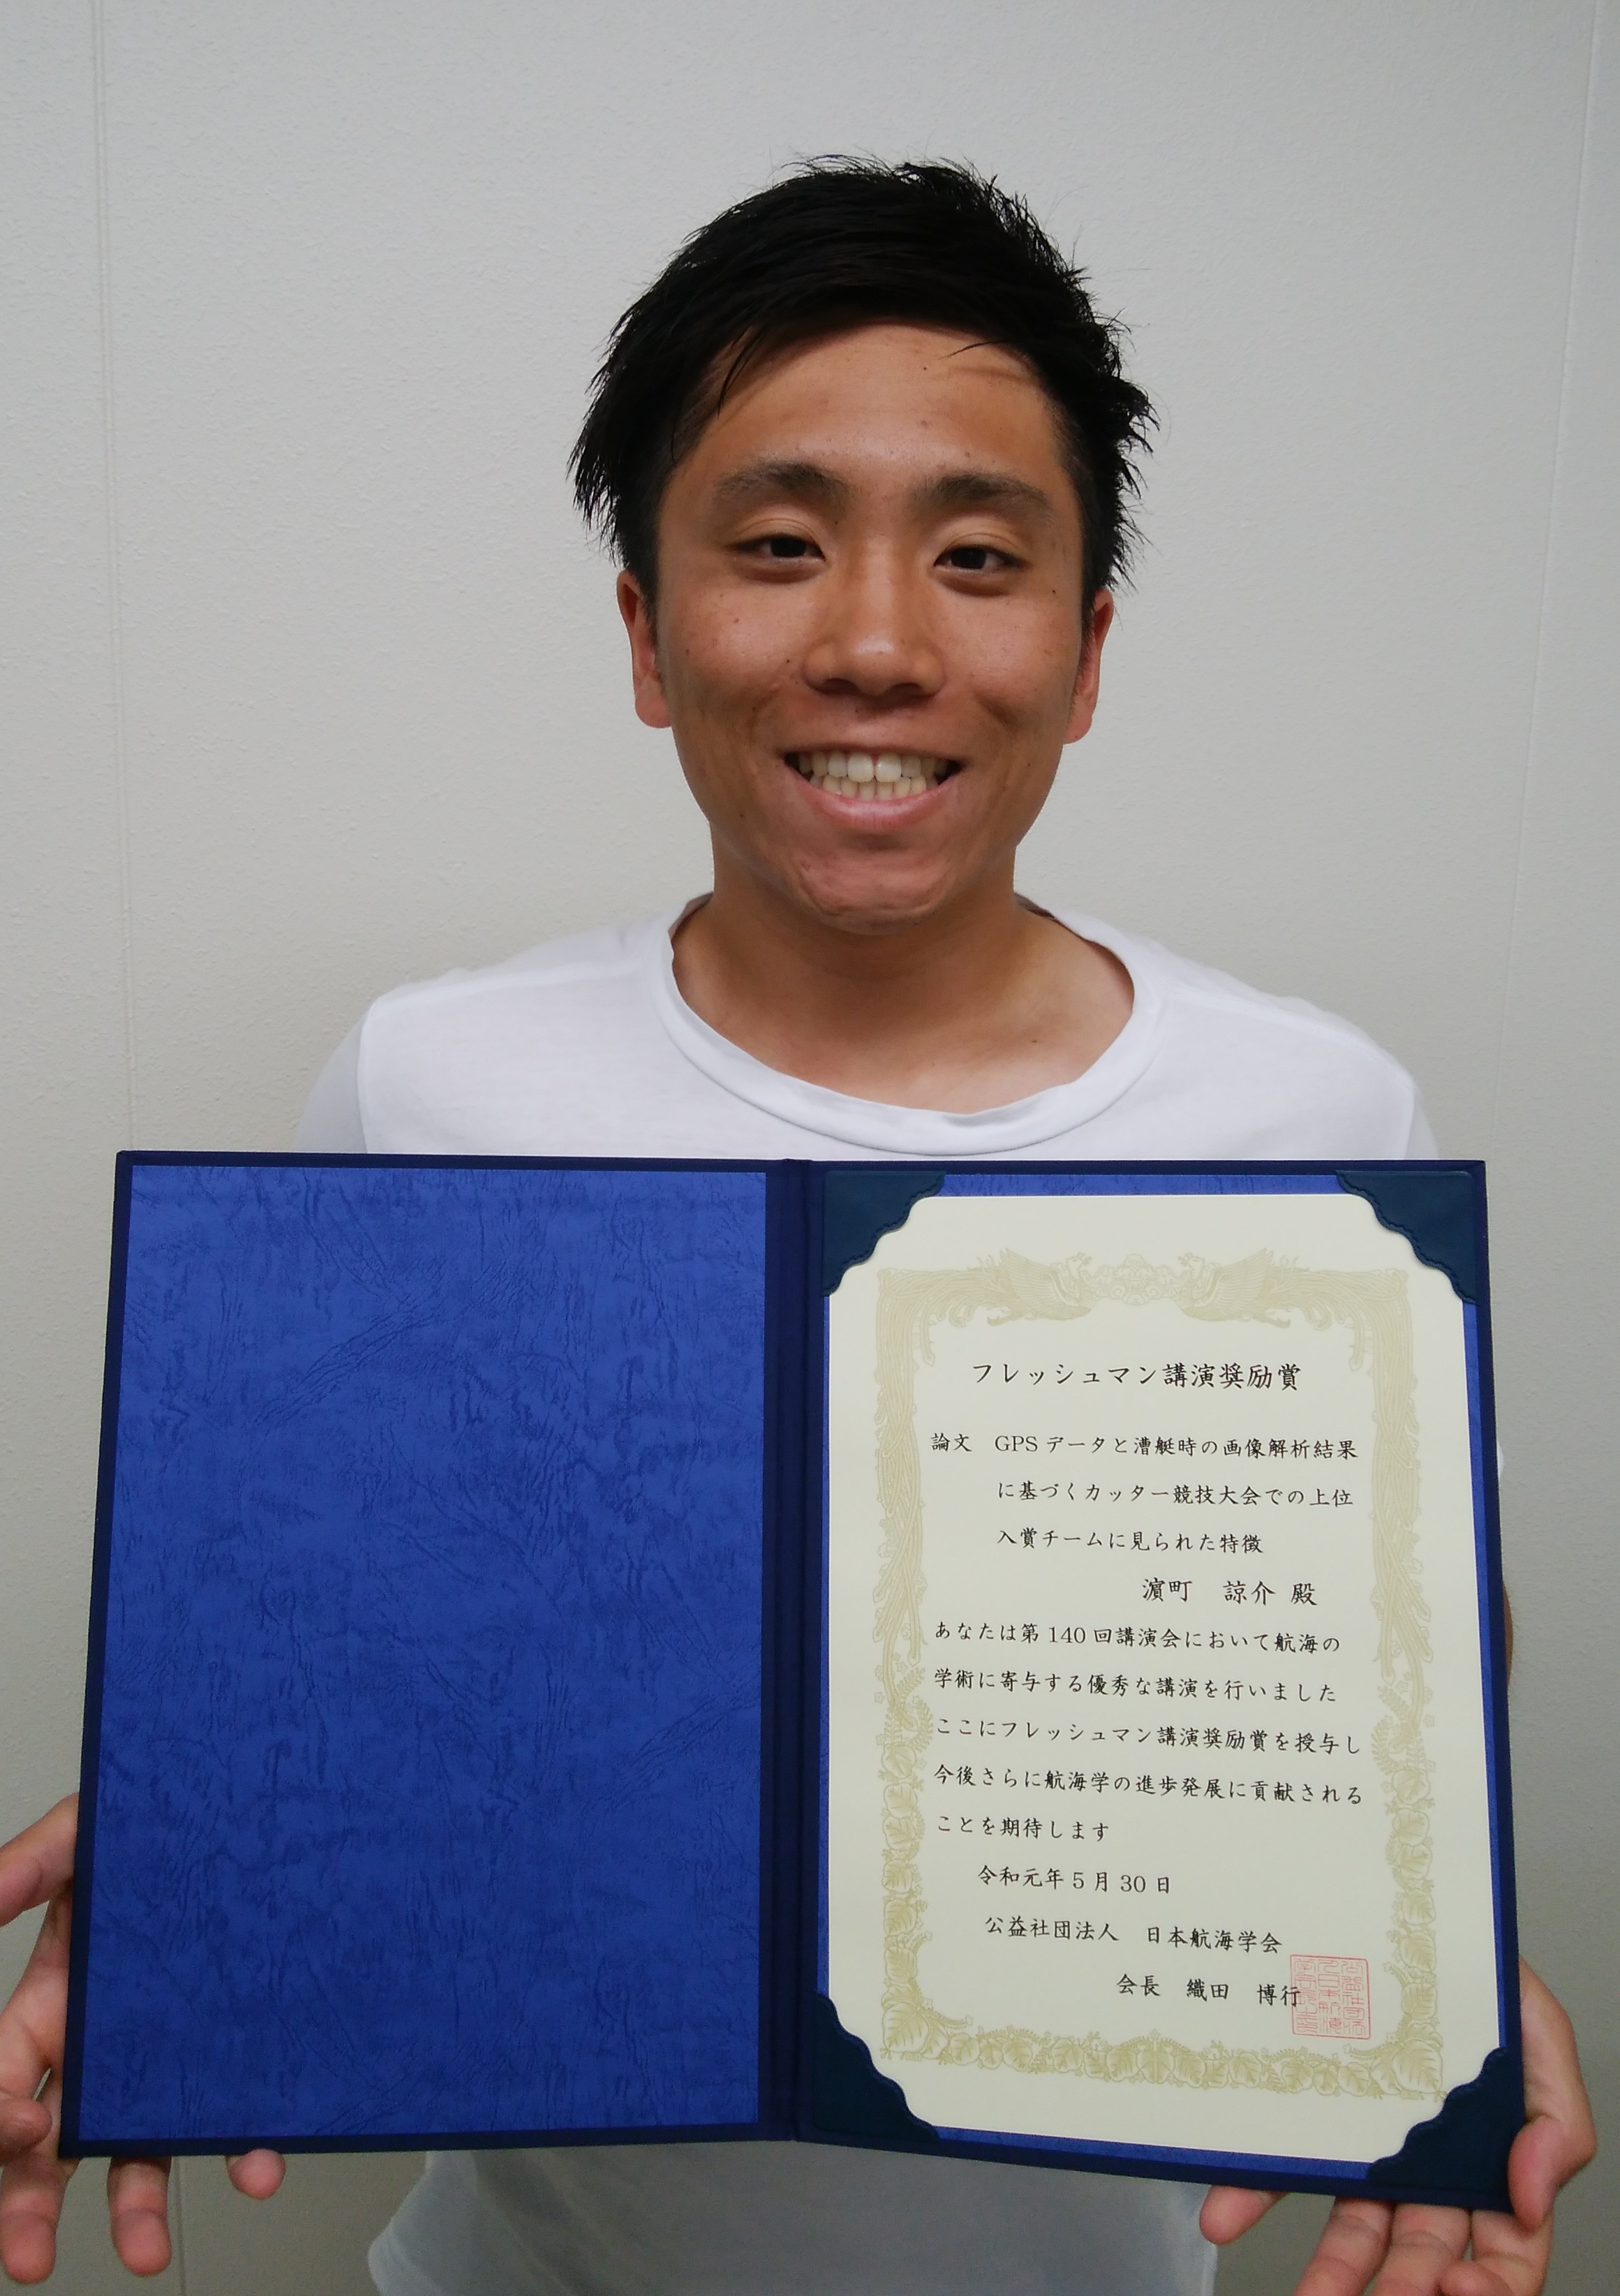 フレッシュマン講演奨励賞
論文　GPSデータと漕艇時の画像解析結果
に基づくカッター競技大会での上位
入賞チームに見られた特徴
濵町　諒介 殿
あなたは第140回講演会において航海の
学術に寄与する優秀な講演を行いました
ここにフレッシュマン講演奨励賞を授与し
今後さらに航海学の進歩発展に貢献される
ことを期待します
令和元年5月30日
公益社団法人　日本航海学会
会長　織田　博行